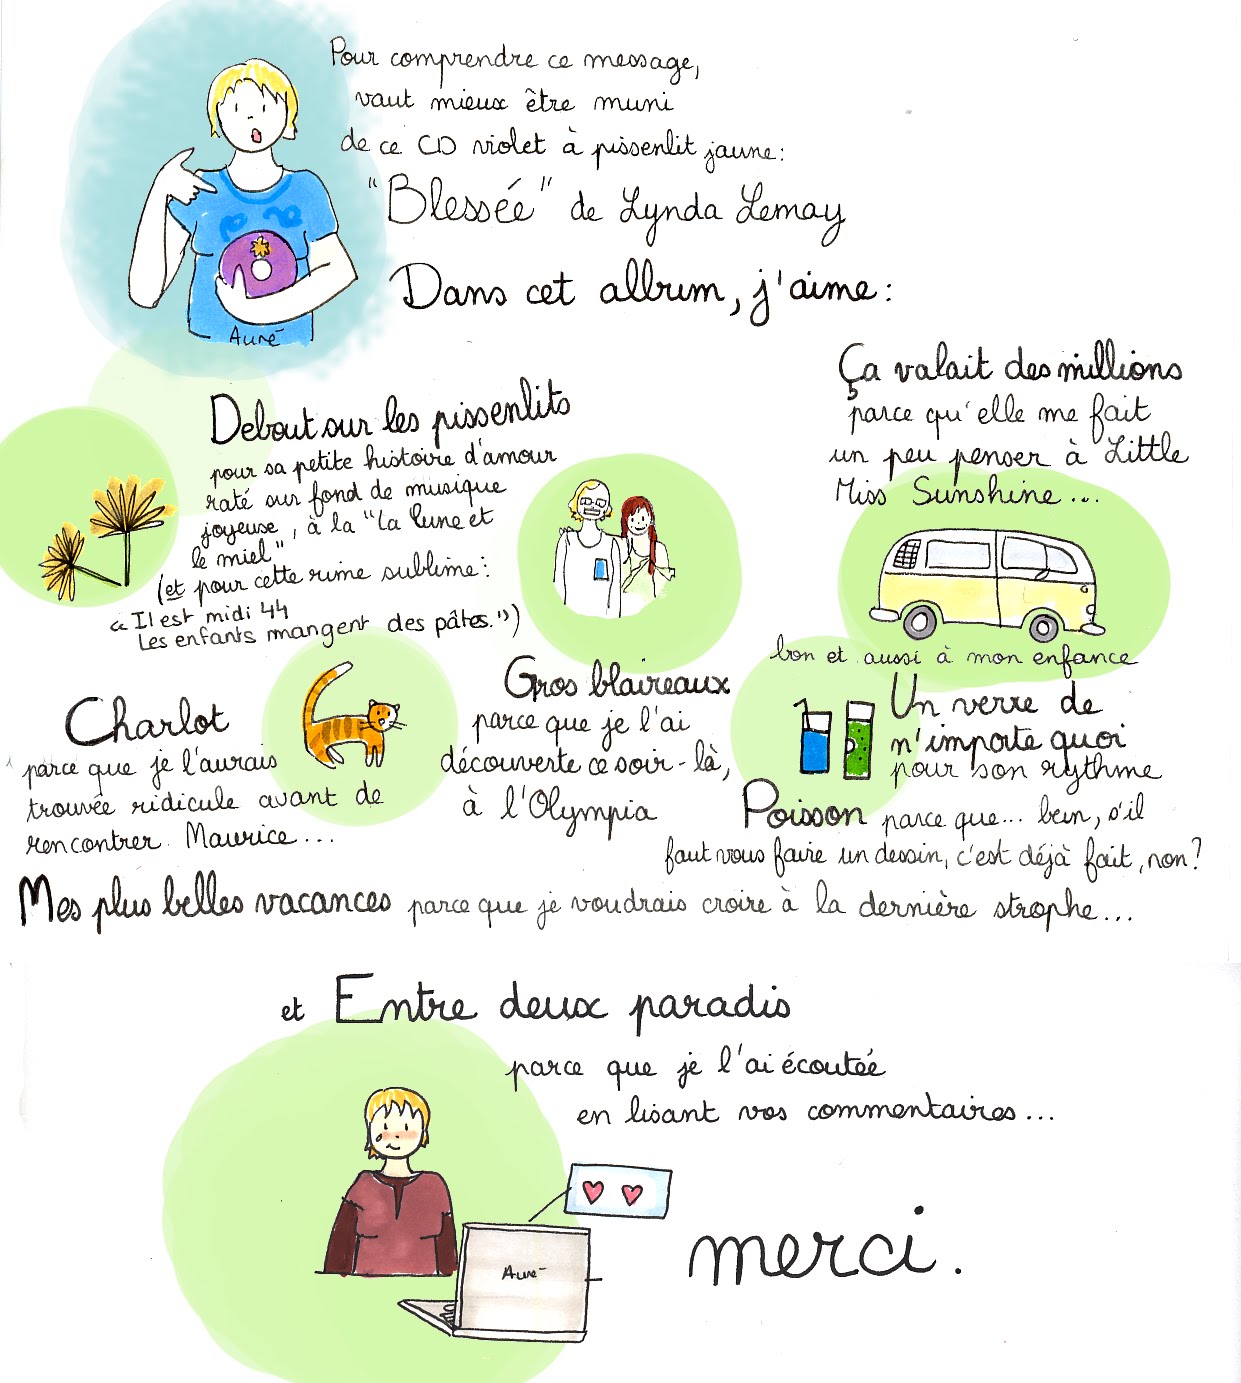 Pour comprendre ce message,
vaut mieux être muni
de ce CD violet à pissenlit jaune:
"Blessée" de Lynda Lemay
Dans cet album, j'aime:
Auré
Debout sur les pissenlits
pour sa petite histoire d'amour
raté sur fond de musique
joyeuse, à la "la lune et
le miel"
(et pour cette rime sublime:
« Il est midi 44
Les enfants mangent des pâtes.")
Ça valait des millions
parce qu'elle me fait
un peu penser à Little
Miss Sunshine...
bon et aussi à mon enfance
Charlot
parce que je l'aurais
trouvée ridicule avant de
rencontrer Maurice...
Gros blaireaux
parce que je l'ai
découverte ce soir-là,
à l'Olympia
Un verre de
n'importe quoi
pour son rythme
Poisson parce que... bein, s'il
faut vous faire un dessin, c'est déjà fait, non?
Mes plus belles vacances parce que je voudrais croire à la dernière strophe...
et Entre deux paradis
parce que je l'ai écoutée
en lisant vos commentaires...
Auré
merci.